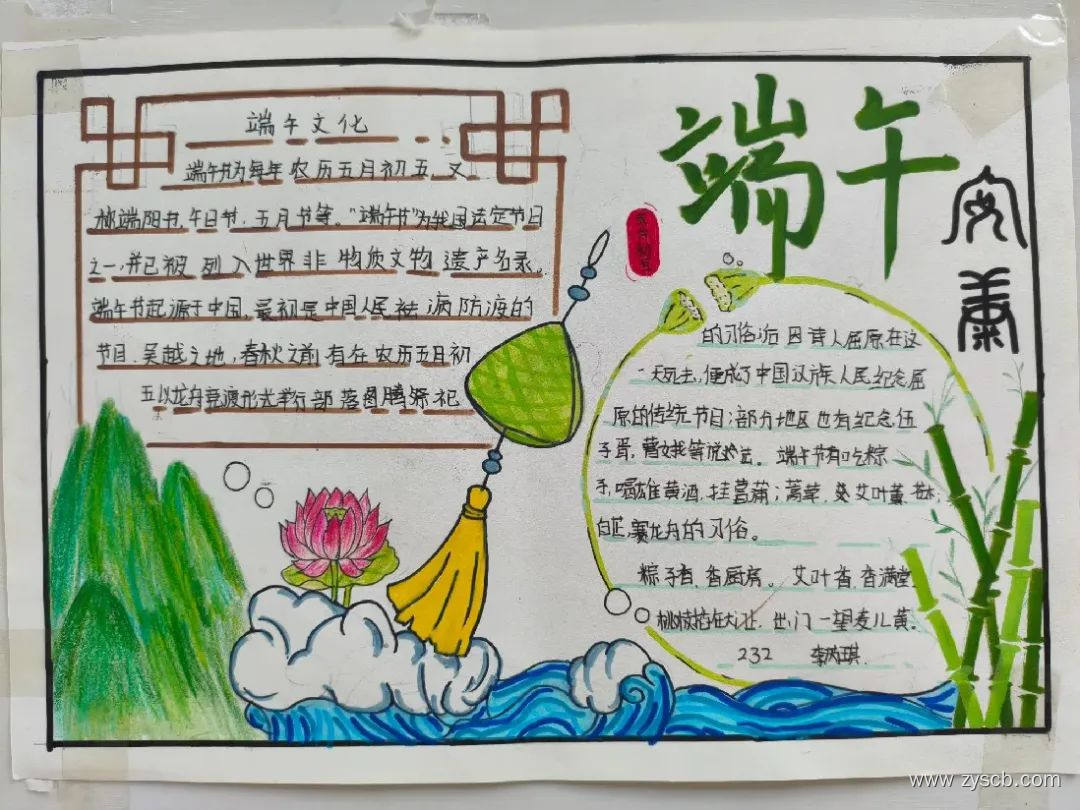 端午文化
端午节为每年农历五月初五,又
称端阳节,午日节,五月节等。"端午节"为我国法定节日
之一,并已被列入世界非物质文物遗产名录。
端午节起源于中国,最初是中国人民祛病防疫的
节日,吴越之地,春秋之前有在农历五月初
五以龙舟竞渡形式举行部落图腾祭祀
端午
安康
的习俗;后因诗人屈原在这
一天死去,便成了中国汉族人民纪念屈
原的传统节日;部分地区也有纪念伍
子胥,曹娥等说法。端午节有吃粽
子,喝雄黄酒,挂菖蒲;蒿草,艾叶薰
白芷,赛龙舟的习俗。
粽子香,香厨房。艾叶香,香满堂,
桃枝插在大门上,出门一望麦儿黄。
232 李
琪
www.zyscb.com